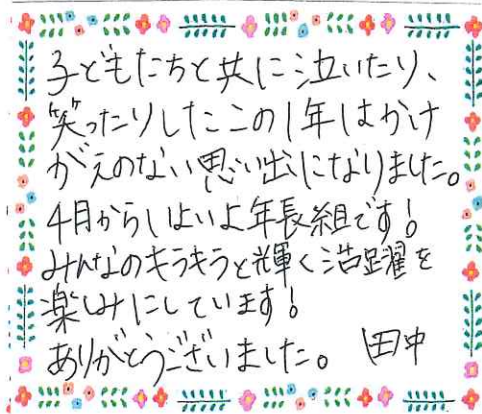 子どもたちと共に泣いたり、
笑ったりしたこの1年はかけ
がえのない思い出になりました。
4月からいよいよ年長組です!
みんなのキラキラと輝く活躍を
楽しみにしています!
ありがとうございました。 田中